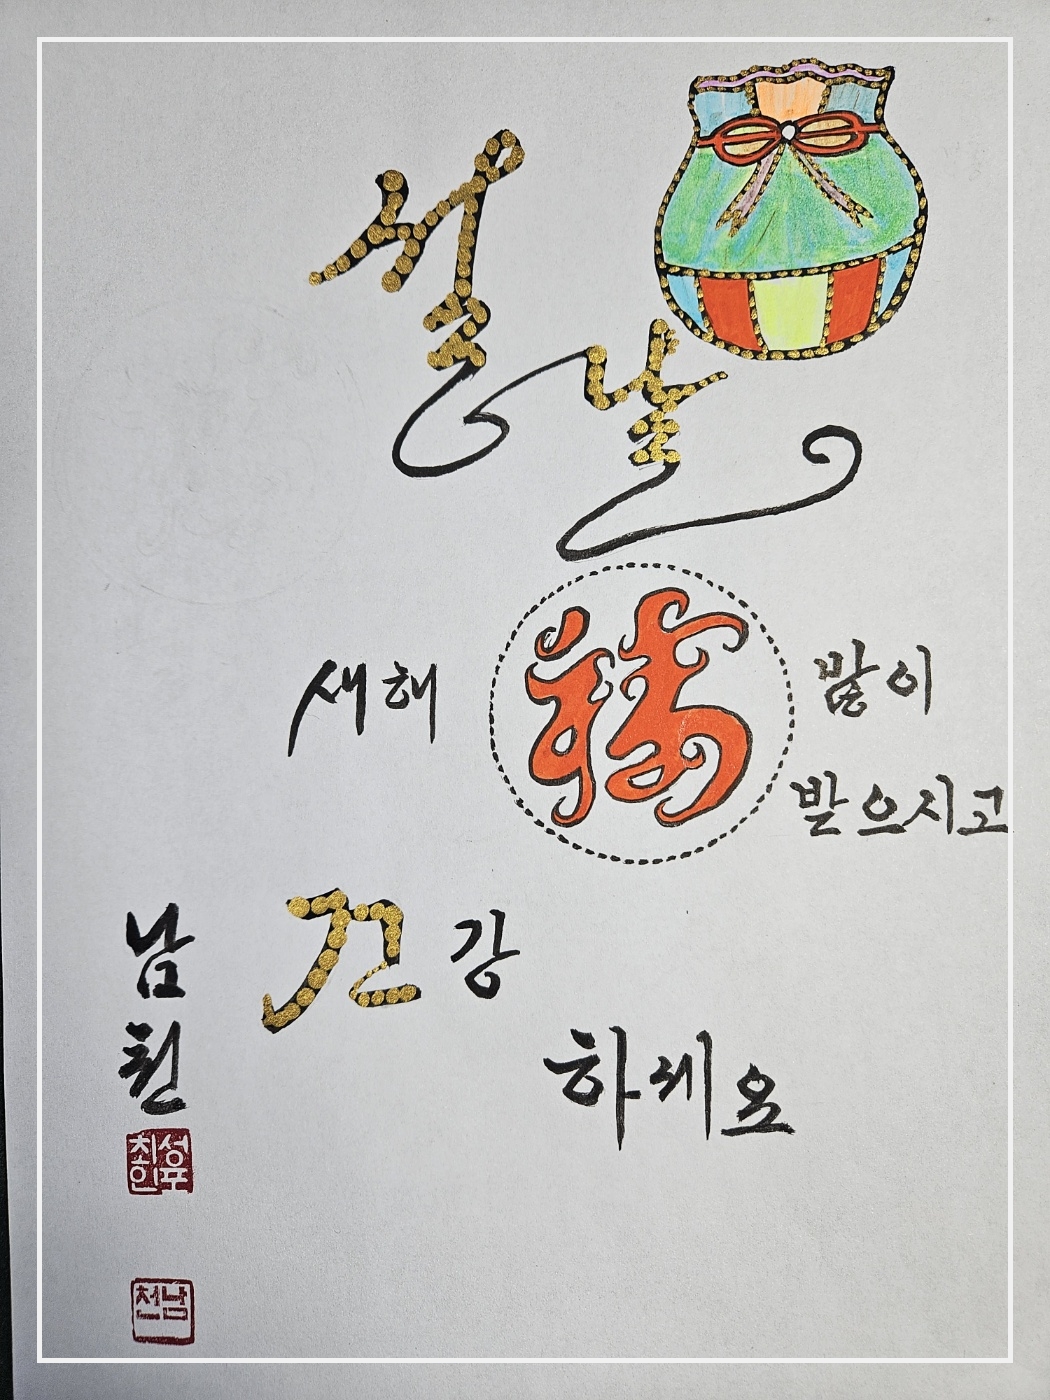 설날
새해 福 많이
받으시고
건강
하세요
남천
남천